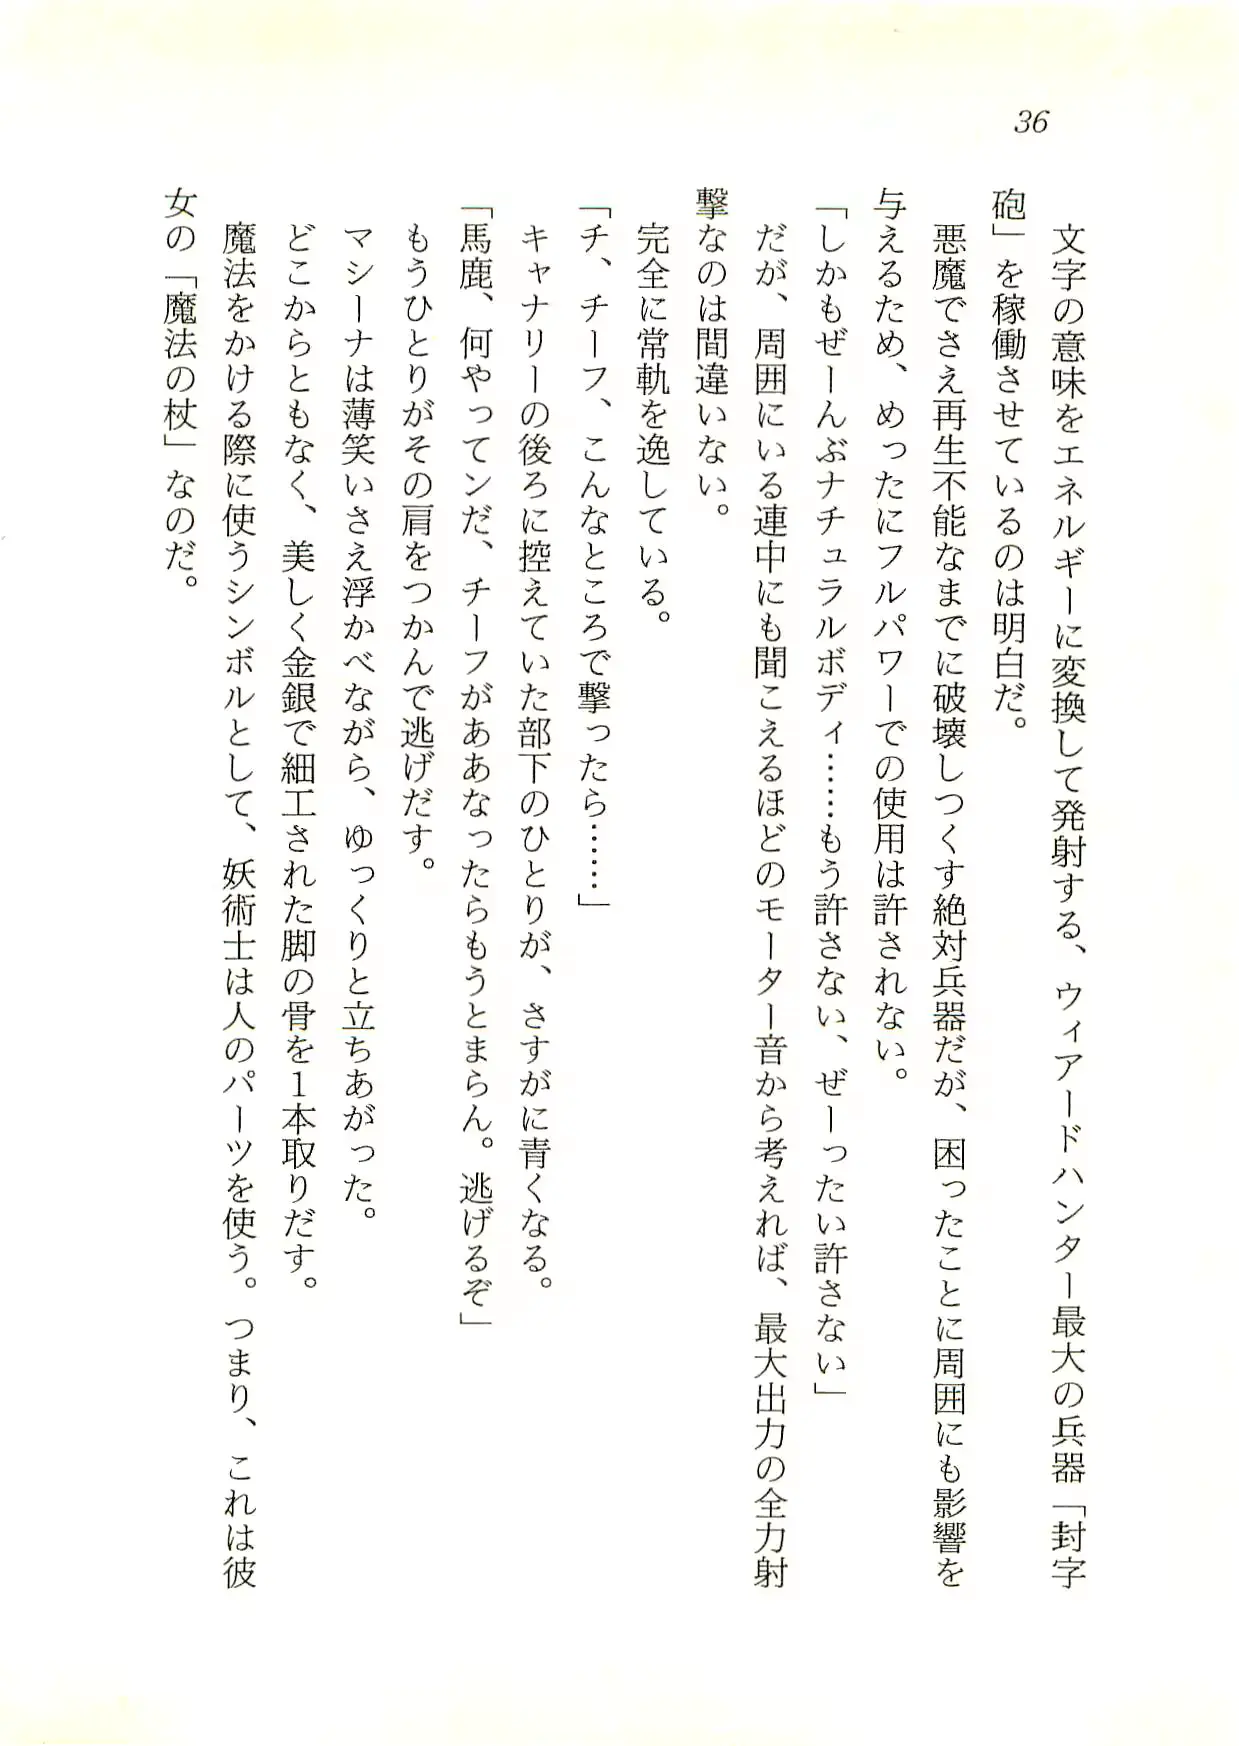 36
文字の意味をエネルギーに変換して発射する、ウィアードハンター最大の兵器「封字
砲」を稼働させているのは明白だ。
悪魔でさえ再生不能なまでに破壊しつくす絶対兵器だが、困ったことに周囲にも影響を
与えるため、めったにフルパワーでの使用は許されない。
「しかもぜーんぶナチュラルボディ……もう許さない、ぜーったい許さない」
だが、周囲にいる連中にも聞こえるほどのモーター音から考えれば、最大出力の全力射
撃なのは間違いない。
完全に常軌を逸している。
「チ、チーフ、こんなところで撃ったら……」
キャナリーの後ろに控えていた部下のひとりが、さすがに青くなる。
「馬鹿、何やってンだ、チーフがああなったらもうとまらん。逃げるぞ」
もうひとりがその肩をつかんで逃げだす。
マシーナは薄笑いさえ浮かべながら、ゆっくりと立ちあがった。
どこからともなく、美しく金銀で細工された脚の骨を1本取りだす。
魔法をかける際に使うシンボルとして、妖術士は人のパーツを使う。つまり、これは彼
女の「魔法の杖」なのだ。